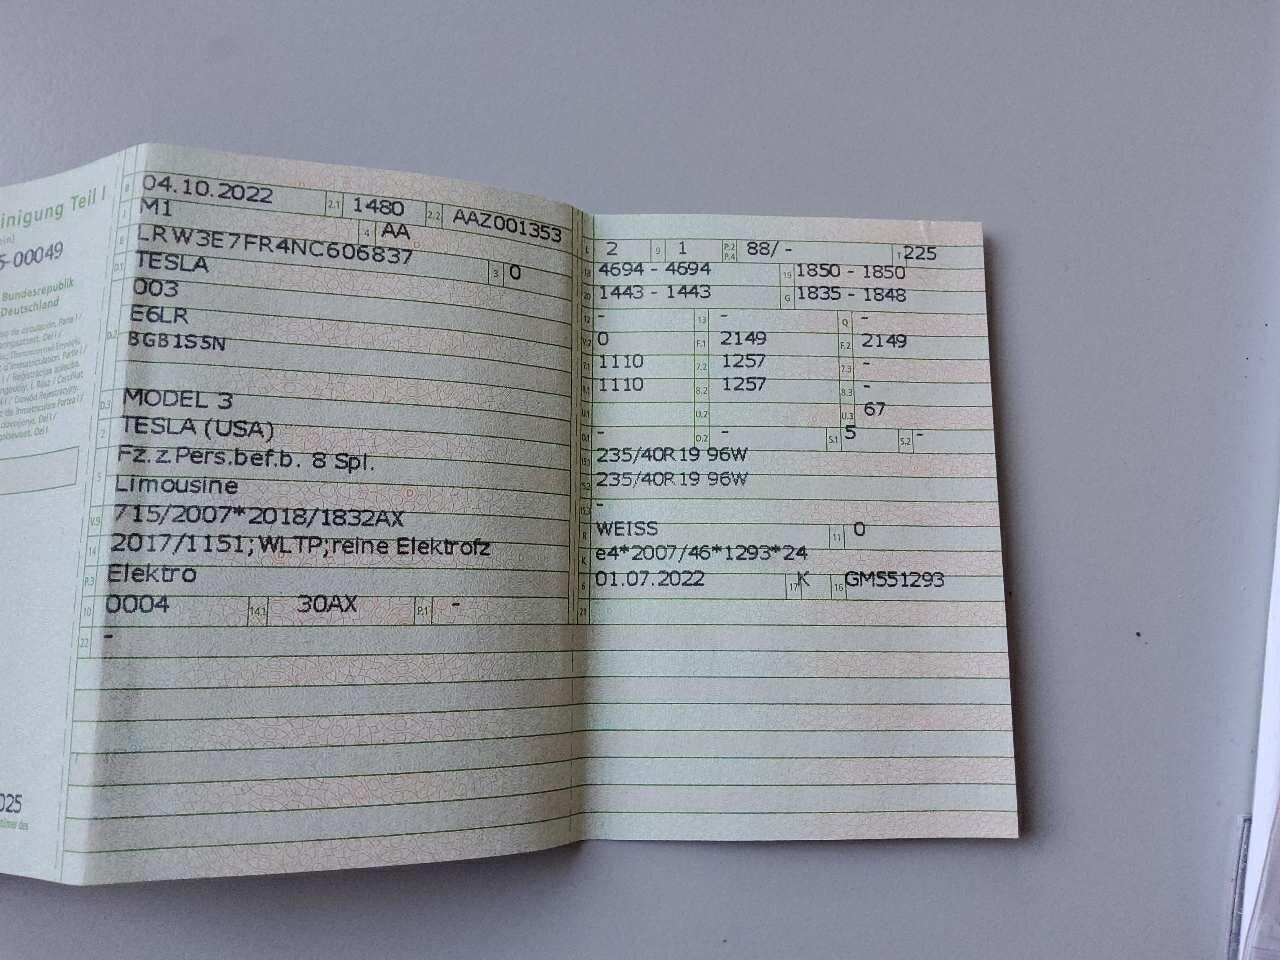 inigung Teil I
5-00049
Bundesrepublik
Deutschland
025
B 04.10.2022 2.1 1480 2.2 AAZ001353
J M1 4 AA
E LRW3E7FR4NC606837 3 0
D.1 TESLA
003
E6LR
D.2 BGB1S5N
D.3 MODEL 3
2 TESLA (USA)
Fz.z.Pers.bef.b. 8 Spl.
5 Limousine
V.9 715/2007*2018/1832AX
14 2017/1151;WLTP;reine Elektrofz
P.3 Elektro
10 0004 14.1 30AX P.1 -
22 -
L 2 9 1 P.2 P.4 88/ - T 225
18 4694 - 4694 19 1850 - 1850
20 1443 - 1443 G 1835 - 1848
12 - 13 - Q -
V.7 0 F.1 2149 F.2 2149
7.1 1110 7.2 1257 7.3 -
8.1 1110 8.2 1257 8.3 -
U.1 U.2 U.3 67
O.1 - O.2 - S.1 5 S.2 -
15.1 235/40R19 96W
15.2 235/40R19 96W
15.3 -
R WEISS 11 0
K e4*2007/46*1293*24
6 01.07.2022 17 K 16 GM551293
21